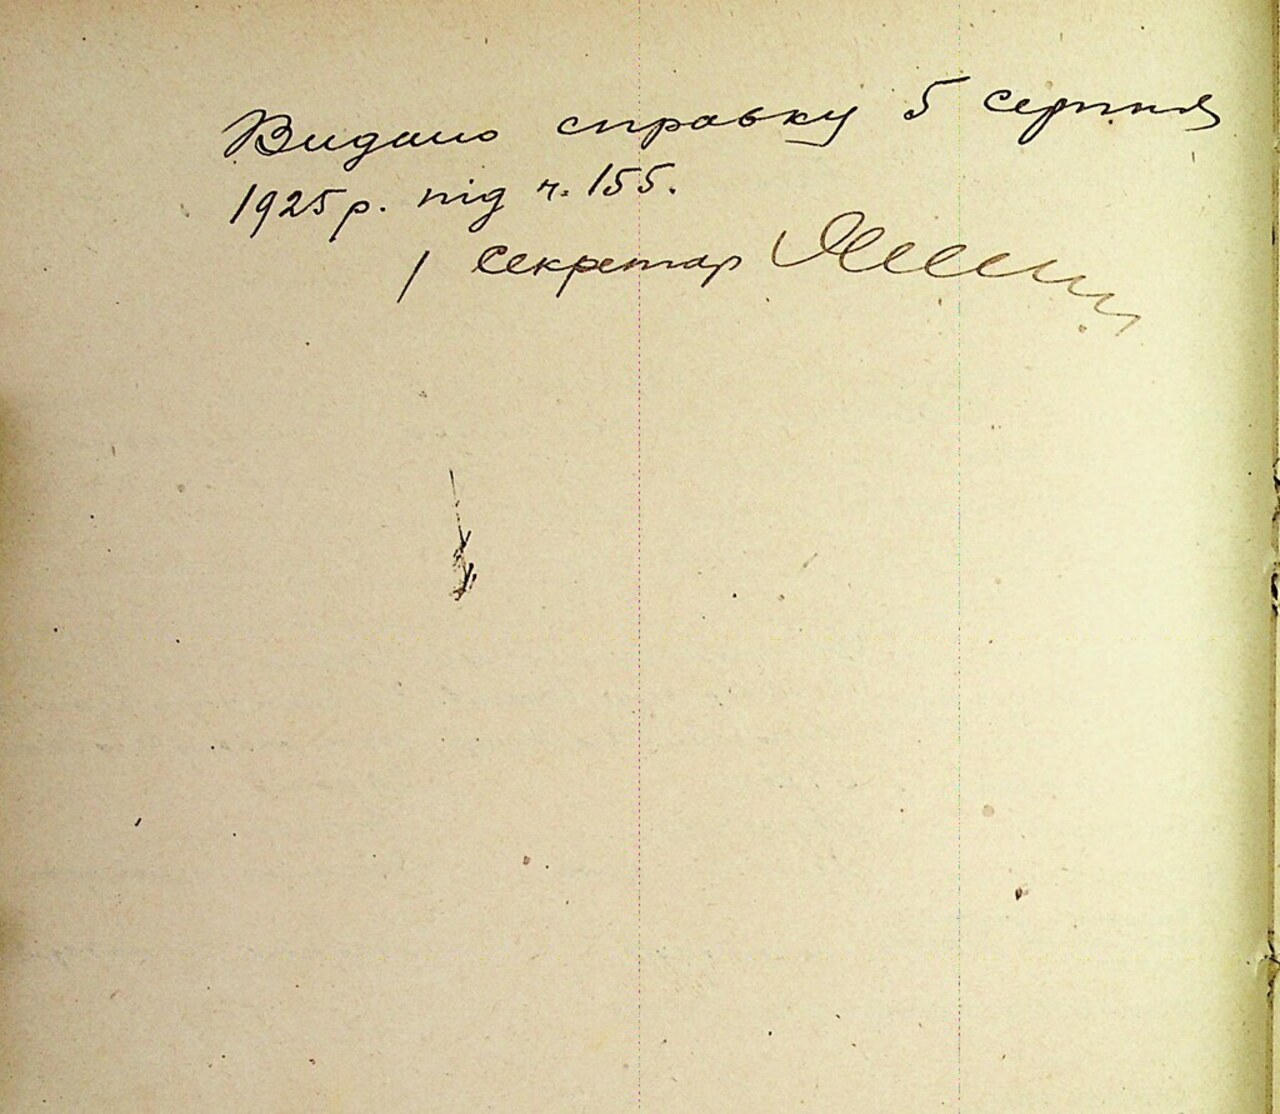 Видано справку 5 серпня
1925 р. під ч. 155.
/ Секретар